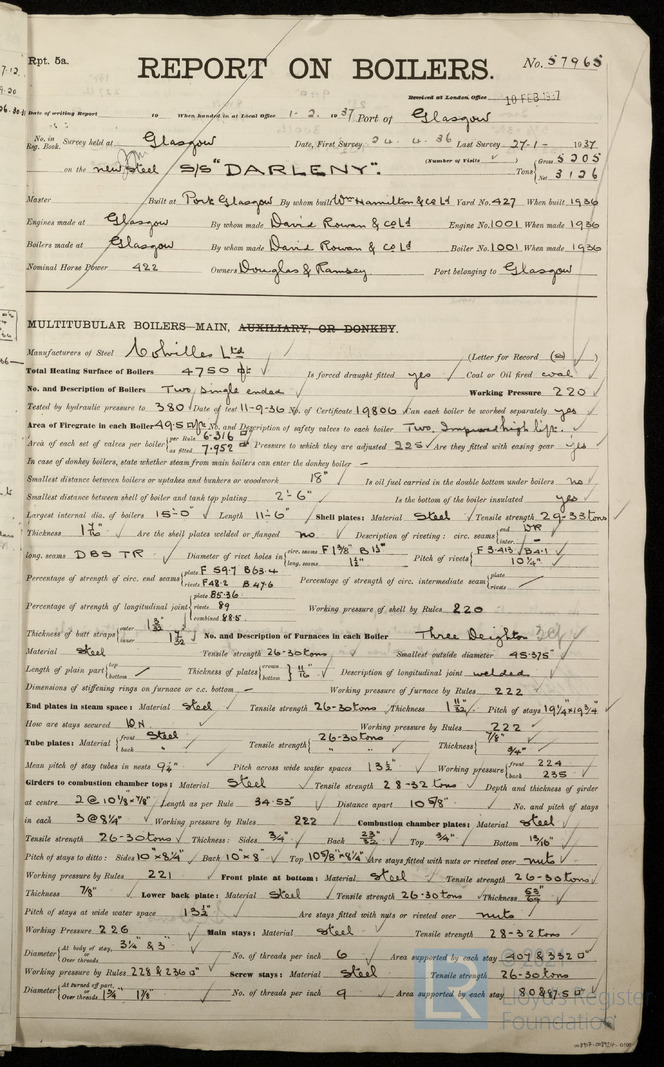 Rpt. 5a.
REPORT ON BOILERS.
No. 57965
Received at London Office 10 FEB 1937
Date of writing Report 19 When handed in at Local Office 1-2. 1937 Port of Glasgow
No. in Reg. Book. Survey held at Glasgow Date, First Survey 24.4.36 Last Survey 27-1- 1937
on the new steel S/S "DARLENY". (Number of Visits ) Tons Gross 5205 Net 3126
Master Built at Port Glasgow By whom built Wm Hamilton & Co Ld Yard No. 427 When built 1936
Engines made at Glasgow By whom made David Rowan & Co Ld Engine No. 1001 When made 1936
Boilers made at Glasgow By whom made David Rowan & Co Ld Boiler No. 1001 When made 1936
Nominal Horse Power 422 Owners Douglas & Ramsey Port belonging to Glasgow
MULTITUBULAR BOILERS—MAIN, AUXILIARY, OR DONKEY.
Manufacturers of Steel Colvilles Ltd (Letter for Record (S) )
Total Heating Surface of Boilers 4750 Is forced draught fitted yes Coal or Oil fired coal
No. and Description of Boilers Two, Single ended Working Pressure 220
Tested by hydraulic pressure to 380 Date of test 11-9-36 No. of Certificate 19806 Can each boiler be worked separately yes
Area of Firegrate in each Boiler 49.5 □ft No. and Description of safety valves to each boiler Two, Improved high lift.
Area of each set of valves per boiler per Rule 6.316 □" as fitted 7.952 □" Pressure to which they are adjusted 225 Are they fitted with easing gear yes
In case of donkey boilers, state whether steam from main boilers can enter the donkey boiler —
Smallest distance between boilers or uptakes and bunkers or woodwork 18" Is oil fuel carried in the double bottom under boilers no
Smallest distance between shell of boiler and tank top plating 2'-6" Is the bottom of the boiler insulated yes
Largest internal dia. of boilers 15'-0" Length 11'-6" Shell plates: Material Steel Tensile strength 29-33 tons
Thickness 1 7/16 Are the shell plates welded or flanged no Description of riveting: circ. seams end DR inter. —
long. seams DBS TR Diameter of rivet holes in circ. seams F 1 3/8" B 1 1/2" long. seams 1 1/2" Pitch of rivets F 3.413 B 4.1 10 1/4"
Percentage of strength of circ. end seams plate F 59.7 B 63.4 rivets F 48.2 B 47.6 Percentage of strength of circ. intermediate seam plate rivets
Percentage of strength of longitudinal joint plate 85.36 rivets 89 combined 88.5 Working pressure of shell by Rules 220
Thickness of butt straps outer 1 3/32 inner 1 7/32 No. and Description of Furnaces in each Boiler Three Deighton
Material Steel Tensile strength 26-30 tons Smallest outside diameter 45.375"
Length of plain part top bottom Thickness of plates crown bottom 11/16 Description of longitudinal joint welded
Dimensions of stiffening rings on furnace or c.c. bottom — Working pressure of furnace by Rules 222
End plates in steam space: Material Steel Tensile strength 26-30 tons Thickness 1 11/32 Pitch of stays 19 1/4" x 19 3/4"
How are stays secured DN Working pressure by Rules 222
Tube plates: Material front Steel back " Tensile strength 26-30 tons " " Thickness 7/8" 3/4"
Mean pitch of stay tubes in nests 9 1/4" Pitch across wide water spaces 13 1/2" Working pressure front 224 back 235
Girders to combustion chamber tops: Material Steel Tensile strength 28-32 tons Depth and thickness of girder
at centre 2 @ 10 1/8 - 7/8" Length as per Rule 34.53" Distance apart 10 5/8" No. and pitch of stays
in each 3 @ 8 1/4" Working pressure by Rules 222 Combustion chamber plates: Material Steel
Tensile strength 26-30 tons Thickness: Sides 3/4" Back 23/32" Top 3/4" Bottom 13/16"
Pitch of stays to ditto: Sides 10" x 8 1/4" Back 10" x 8" Top 10 5/8" x 8 1/4" Are stays fitted with nuts or riveted over nuts
Working pressure by Rules 221 Front plate at bottom: Material Steel Tensile strength 26-30 tons
Thickness 7/8" Lower back plate: Material Steel Tensile strength 26-30 tons Thickness 53/64
Pitch of stays at wide water space 13 1/2" Are stays fitted with nuts or riveted over nuts
Working Pressure 226 Main stays: Material Steel Tensile strength 28-32 tons
Diameter At body of stay, or Over threads 3 1/4" & 3" No. of threads per inch 6 Area supported by each stay 407 & 332 □"
Working pressure by Rules 228 & 236 □" Screw stays: Material Steel Tensile strength 26-30 tons
Diameter At turned off part, or Over threads 1 3/4" 1 7/8" No. of threads per inch 9 Area supported by each stay 80 & 87.5 □"
© 2021
LR
Lloyd's Register
Foundation